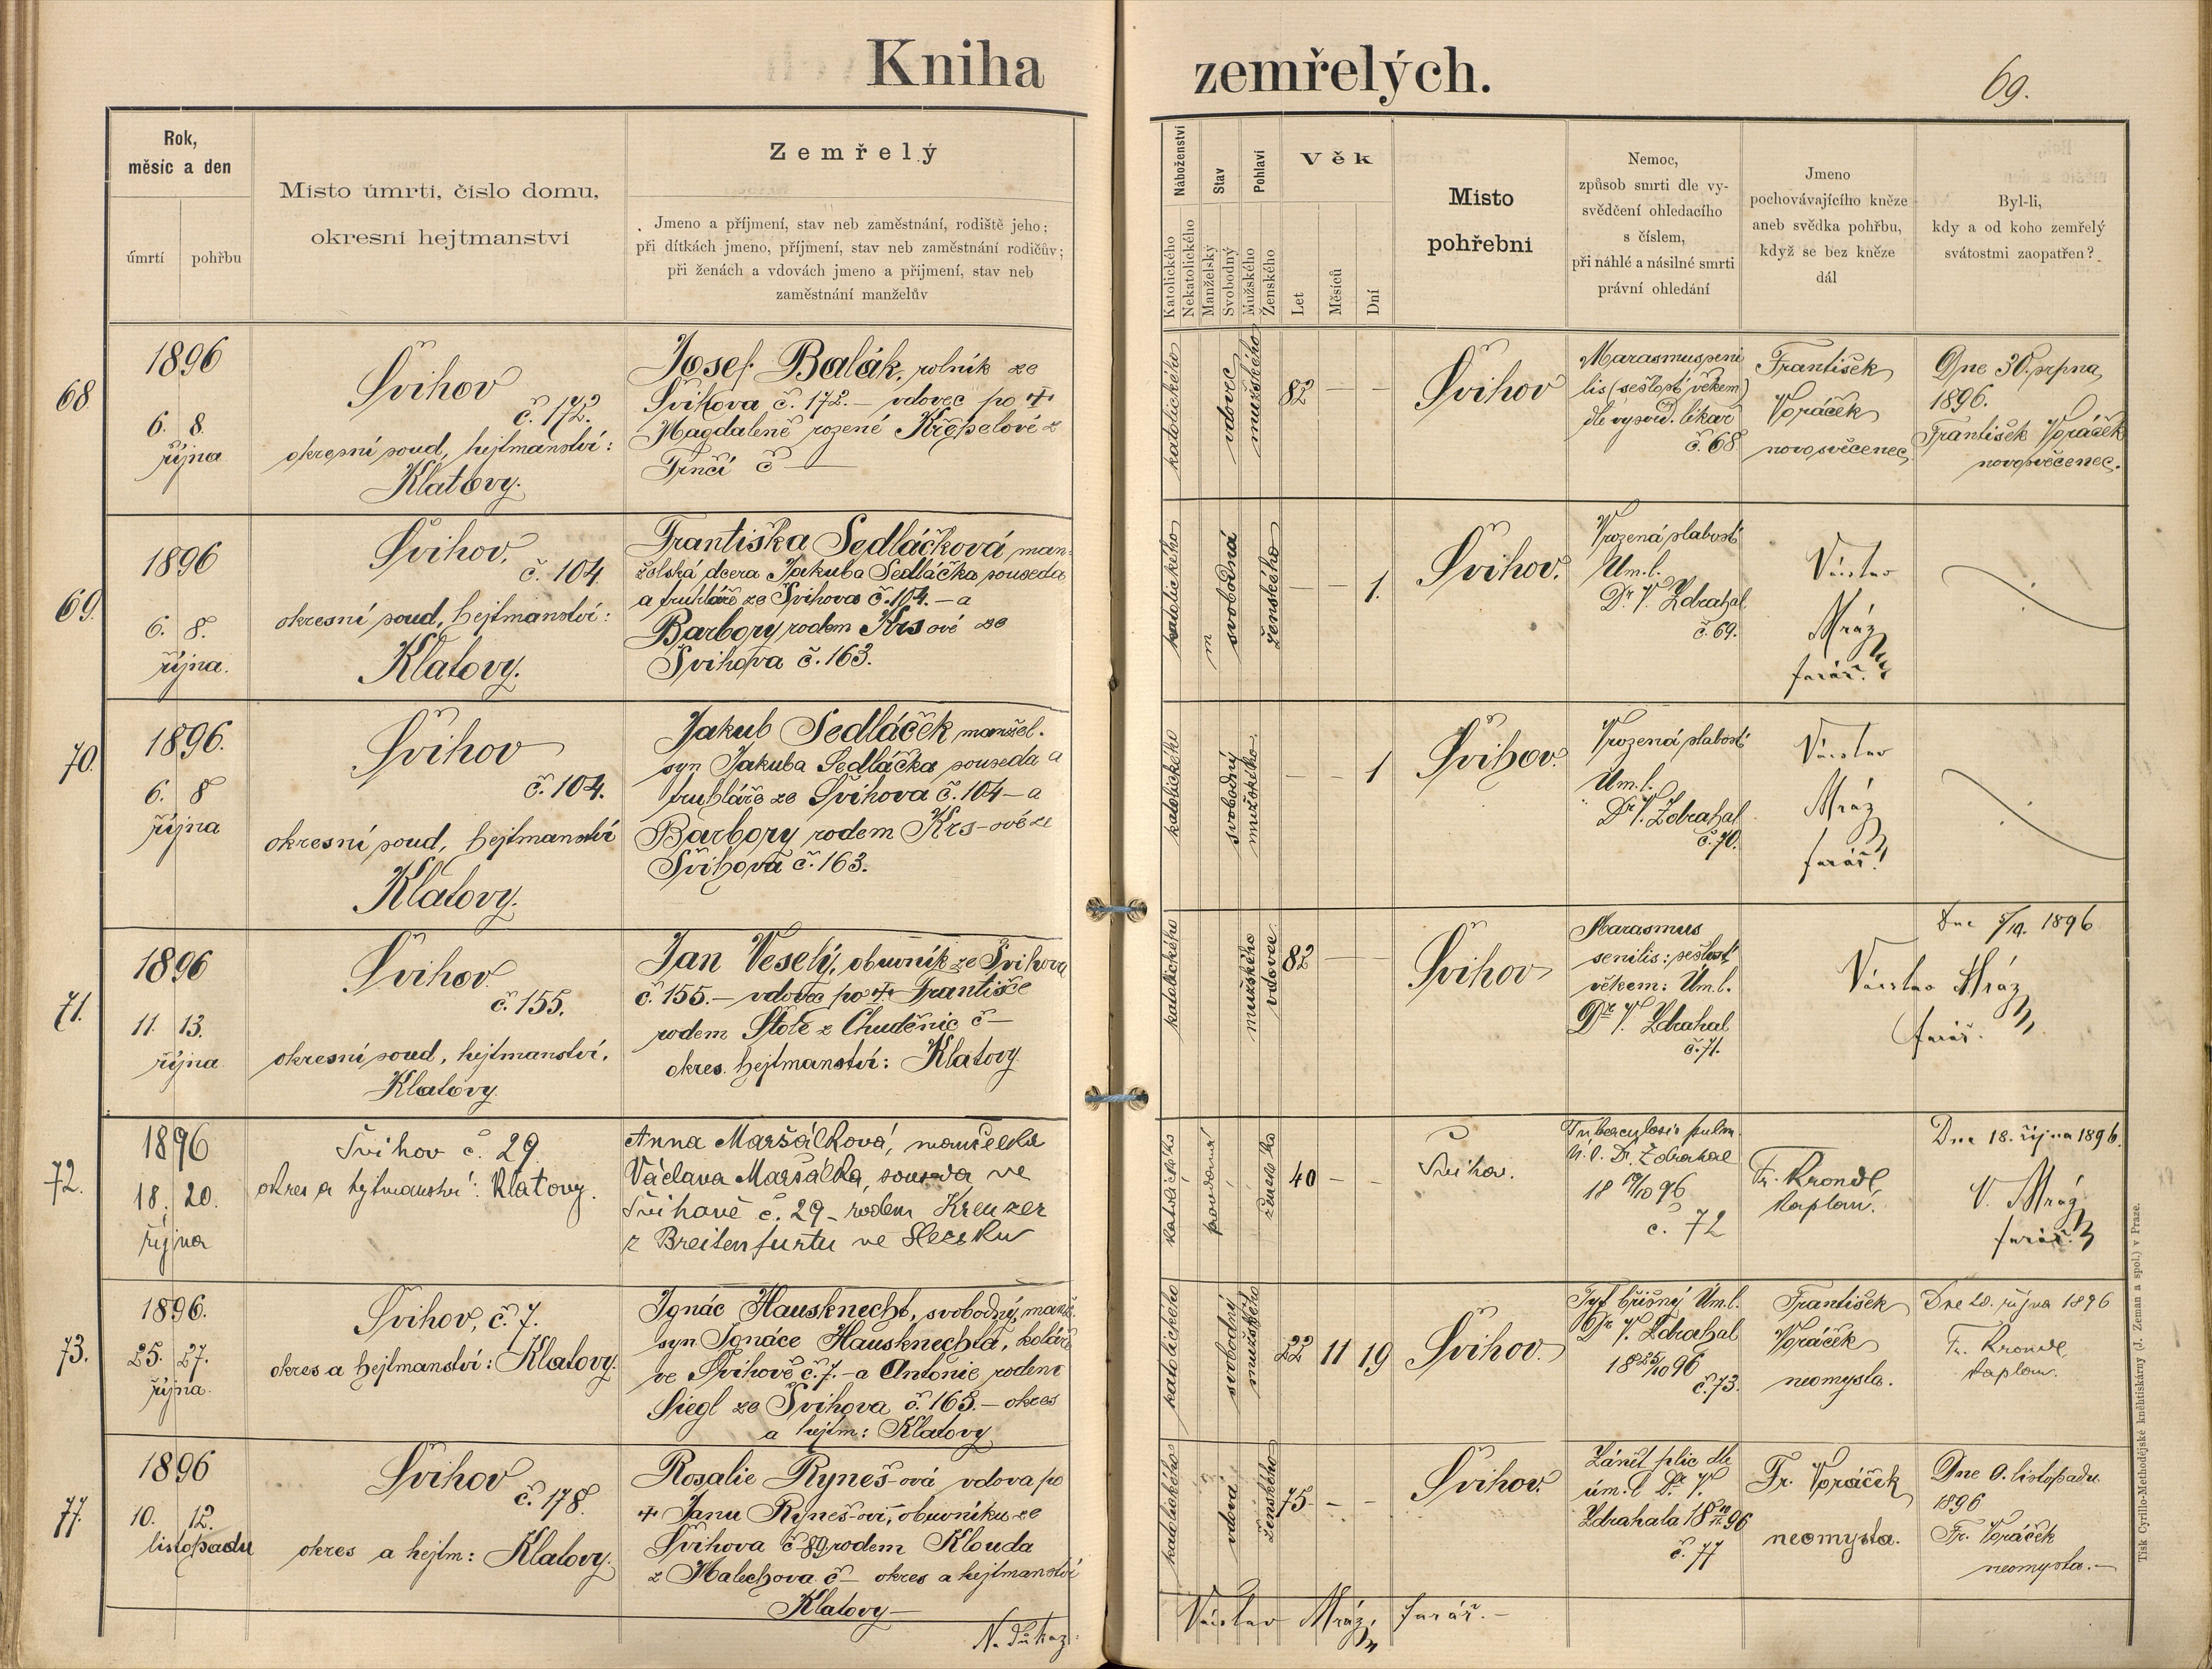 Kniha zemřelých.
69.
Rok,
měsíc a den
úmrtí
pohřbu
Místo úmrtí, číslo domu,
okresní hejtmanství
Zemřelý
Jmeno a příjmení, stav neb zaměstnání, rodiště jeho;
při dítkách jmeno, příjmení, stav neb zaměstnání rodičův;
při ženách a vdovách jmeno a příjmení, stav neb
zaměstnání manželův
Náboženství
Katolického
Nekatolického
Stav
Manželský
Svobodný
Pohlaví
Mužského
Ženského
Věk
Let
Měsíců
Dní
Místo
pohřební
Nemoc,
způsob smrti dle vy-
svědčení ohledacího
s číslem,
při náhlé a násilné smrti
právní ohledání
Jmeno
pochovávajícího kněze
aneb svědka pohřbu,
když se bez kněze
dál
Byl-li,
kdy a od koho zemřelý
svátostmi zaopatřen?
68
1896
6. 8.
října
Švihov
č. 172.
okresní soud, hejtmanství:
Klatovy.
Josef Balák, rolník ze
Švihova č. 172. – vdovec po †
Magdaleně rozené Křepelové z
Trnčí č —
katolického
vdovec
mužského
82 — —
Švihov
Marasmus seni
lis (sešlost věkem)
dle vysvěd. lékař
č. 68
František
Voráček
novosvěcenec
Dne 30. srpna
1896.
František Voráček
novosvěcenec.
69.
1896
6. 8.
října.
Švihov,
č. 104
okresní soud, hejtmanství:
Klatovy.
Františka Sedláčková man-
želská dcera Jakuba Sedláčka souseda
a truhláře ze Švihova č. 104. – a
Barbory rodem Krsové ze
Švihova č. 163.
katolického
m
svobodná
ženského
— — 1.
Švihov.
Vrozená slabost
Úm. l.
Dr. V. Zdrahal
č. 69.
Václav
Mráz
farář.
70.
1896.
6. 8
října
Švihov
č. 104.
okresní soud, hejtmanství
Klatovy.
Jakub Sedláček manžel.
syn Jakuba Sedláčka souseda a
truhláře ze Švihova č. 104 – a
Barbory rodem Krs-ové ze
Švihova č. 163.
katolického
svobodný
mužského
— — 1
Švihov.
Vrozená slabost
Úm. l.
Dr. V. Zdrahal
č. 70.
Václav
Mráz
farář
71.
1896
11. 13.
října
Švihov
č 155.
okresní soud, hejtmanství,
Klatovy
Jan Veselý, obuvník ze Švihova
č. 155. – vdovec po † Františce
rodem z Chuděnic č –
okres. hejtmanství: Klatovy
katolického
mužského
vdovec
82 — —
Švihov
Marasmus
senilis: sešlost
věkem: Úm. l.
Dr. V. Zdrahal
č. 71.
1896
Václav Mráz
farář.
72.
1896
18. 20.
října
Švihov č. 29
okres a hejtmanství: Klatovy.
Anna Maršálková, manželka
Václava Maršálka, souseda ve
Švihově č. 29 – rodem Kreuzer
z Breitenfurtu ve Slezsku
katolické
provdaná
ženské
40 – –
Švihov.
Tuberculosis pulm.
Ú. l. Dr. Zdrahal
18 19/10 96
č. 72
Fr. Krondl
kaplan.
Dne 18. října 1896.
V. Mráz
farář.
73.
1896.
25. 27.
října.
Švihov, č. 7.
okres a hejtmanství: Klatovy.
Ignác Hausknecht, svobodný, manž.
syn Ignáce Hausknechta, koláře
ve Švihově č. 7. – a Antonie rodem
Siegl ze Švihova č. 163. – okres
a hejtm: Klatovy
katolického
svobodný
mužského
22 11 19
Švihov.
Tyf břišný Úm. l.
Dr. V. Zdrahal
18 25/10 96
č. 73.
František
Voráček
neomysta.
Dne 20. října 1896
Fr. Krondl
kaplan.
77.
1896
10. 12.
listopadu
Švihov
č. 178.
okres a hejtm: Klatovy.
Rosalie Ryneš-ová vdova po
† Janu Ryneš-ovi, obuvníku ze
Švihova č 89 rodem Klouda
z Malechova č – okres a hejtmanství
Klatovy –
katolického
vdova
ženského
75 – –
Švihov.
Zánět plic dle
úm. l Dr. V.
Zdrahala 18 96
č. 77
Fr. Voráček
neomysta.
Dne listopadu
1896
Fr. Voráček
neomysta. –
Václav Mráz, farář. –
Tisk Cyrillo-Methodějské kněhtiskárny (J. Zeman a spol.) v Praze.